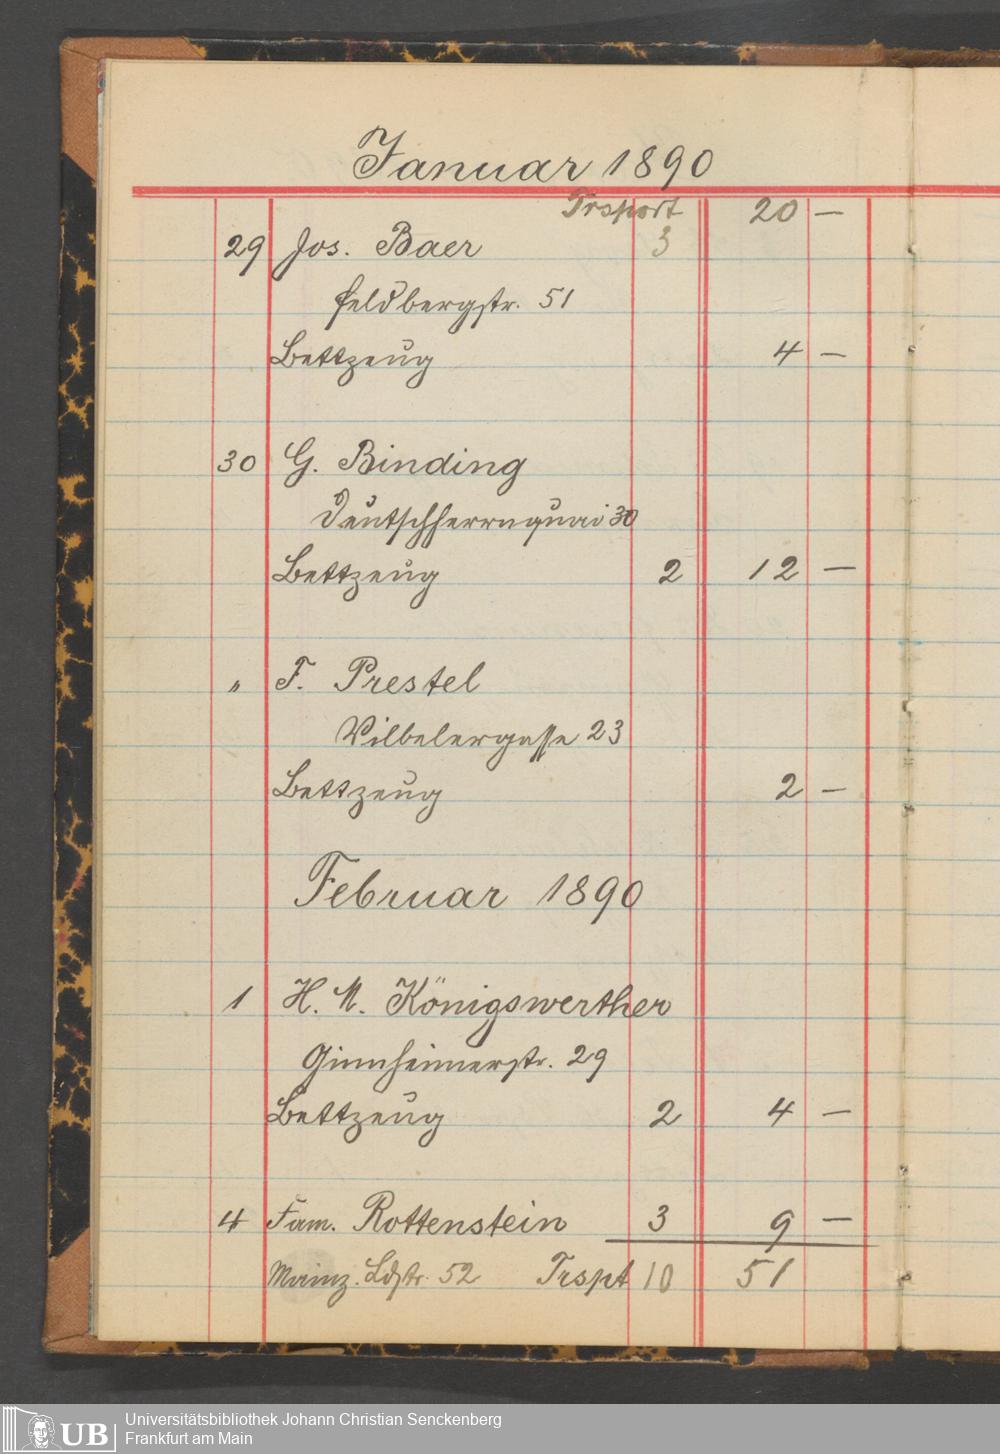 Januar 1890
Trsport 20 —
29 Jos. Baer 3
Feldbergstr. 51
Bettzeug 4 —
30 G. Binding
Deutschherrnquai 30
Bettzeug 2 12 —
" F. Prestel
Vilbelergasse 23
Bettzeug 2 —
Februar 1890
1 H. M. Königswerther
Ginnheimerstr. 29
Bettzeug 2 4 —
4 Fam. Rottenstein 3 9 —
Mainz. Ldstr. 52 Trspt 10 51
UB
Universitätsbibliothek Johann Christian Senckenberg
Frankfurt am Main